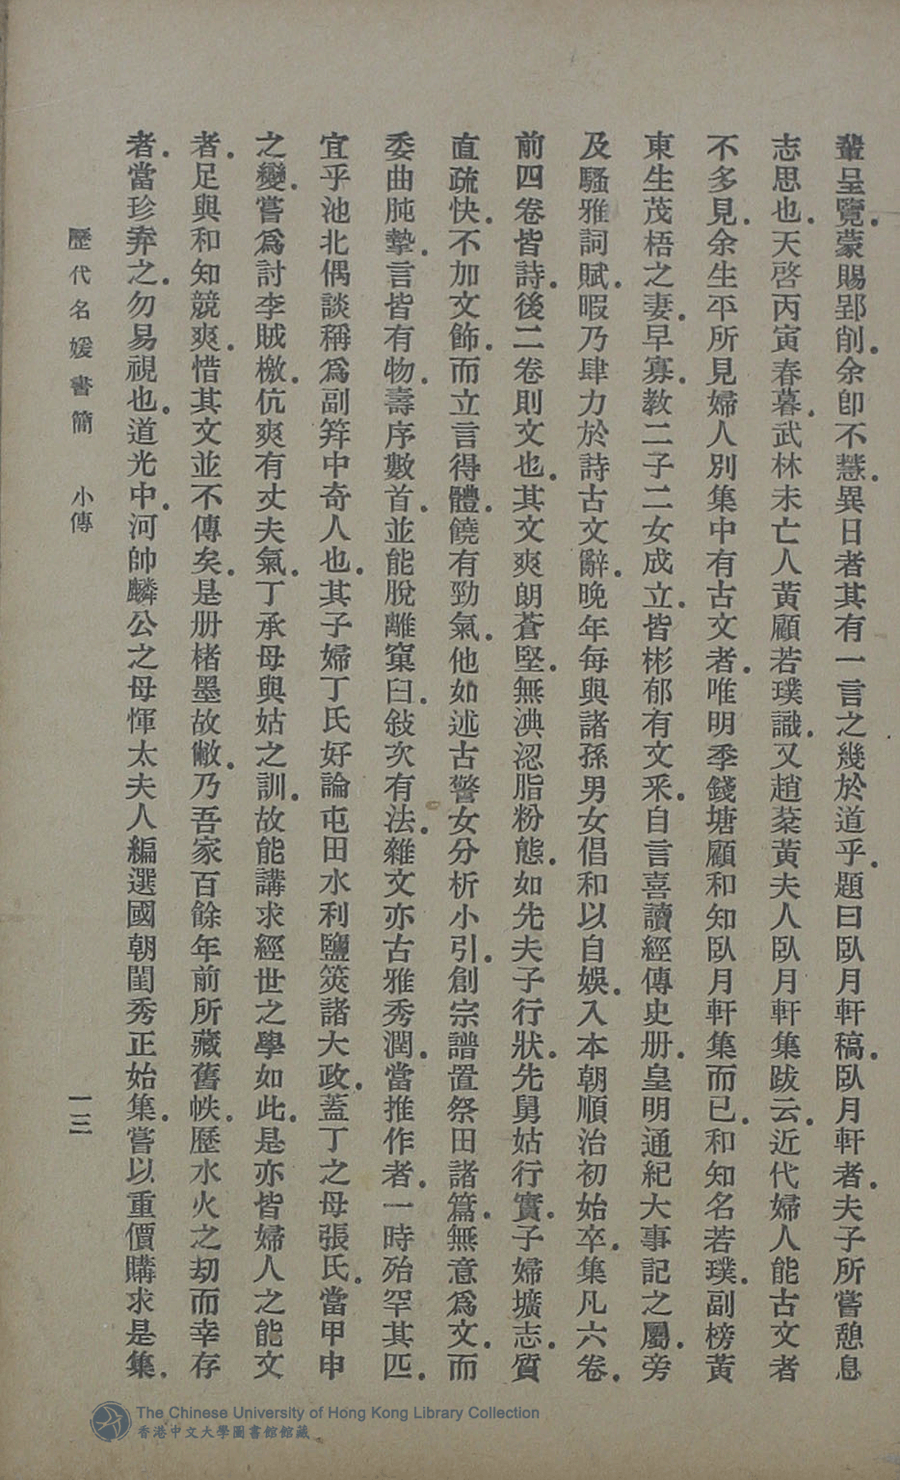 輩呈覽。蒙賜郢削。余卽不慧。異日者其有一言之幾於道乎。題曰臥月軒稿。臥月軒者。夫子所嘗憩息
志思也。天啓丙寅春暮。武林未亡人黃顧若璞識。又趙棻黃夫人臥月軒集跋云。近代婦人能古文者
不多見。余生平所見婦人別集中有古文者。唯明季錢塘顧和知臥月軒集而已。和知名若璞。副榜黃
東生茂梧之妻。早寡。敎二子二女成立。皆彬郁有文釆。自言喜讀經傳史册。皇明通紀大事記之屬。旁
及騷雅詞賦。暇乃肆力於詩古文辭。晚年每與諸孫男女倡和以自娛。入本朝順治初始卒。集凡六卷。
前四卷皆詩。後二卷則文也。其文爽朗蒼堅。無淟涊脂粉態。如先夫子行狀。先舅姑行實。子婦壙志。質
直疏快。不加文飾。而立言得體。饒有勁氣。他如述古警女分析小引。創宗譜置祭田諸篇。無意爲文。而
委曲肫摯。言皆有物。壽序數首。並能脫離窠臼。敍次有法。雜文亦古雅秀潤。當推作者。一時殆罕其匹。
宜乎池北偶談稱爲副笄中奇人也。其子婦丁氏好論屯田水利鹽筴諸大政。蓋丁之母張氏。當甲申
之變。嘗爲討李賊檄。伉爽有丈夫氣。丁承母與姑之訓。故能講求經世之學如此。是亦皆婦人之能文
者。足與和知競爽。惜其文並不傳矣。是册楮墨故敝。乃吾家百餘年前所藏舊帙。歷水火之劫而幸存
者。當珍弆之。勿易視也。道光中。河帥麟公之母惲太夫人編選國朝閨秀正始集。嘗以重價購求是集。
歷代名媛書簡 小傳 一三
The Chinese University of Hong Kong Library Collection
香港中文大學圖書館館藏